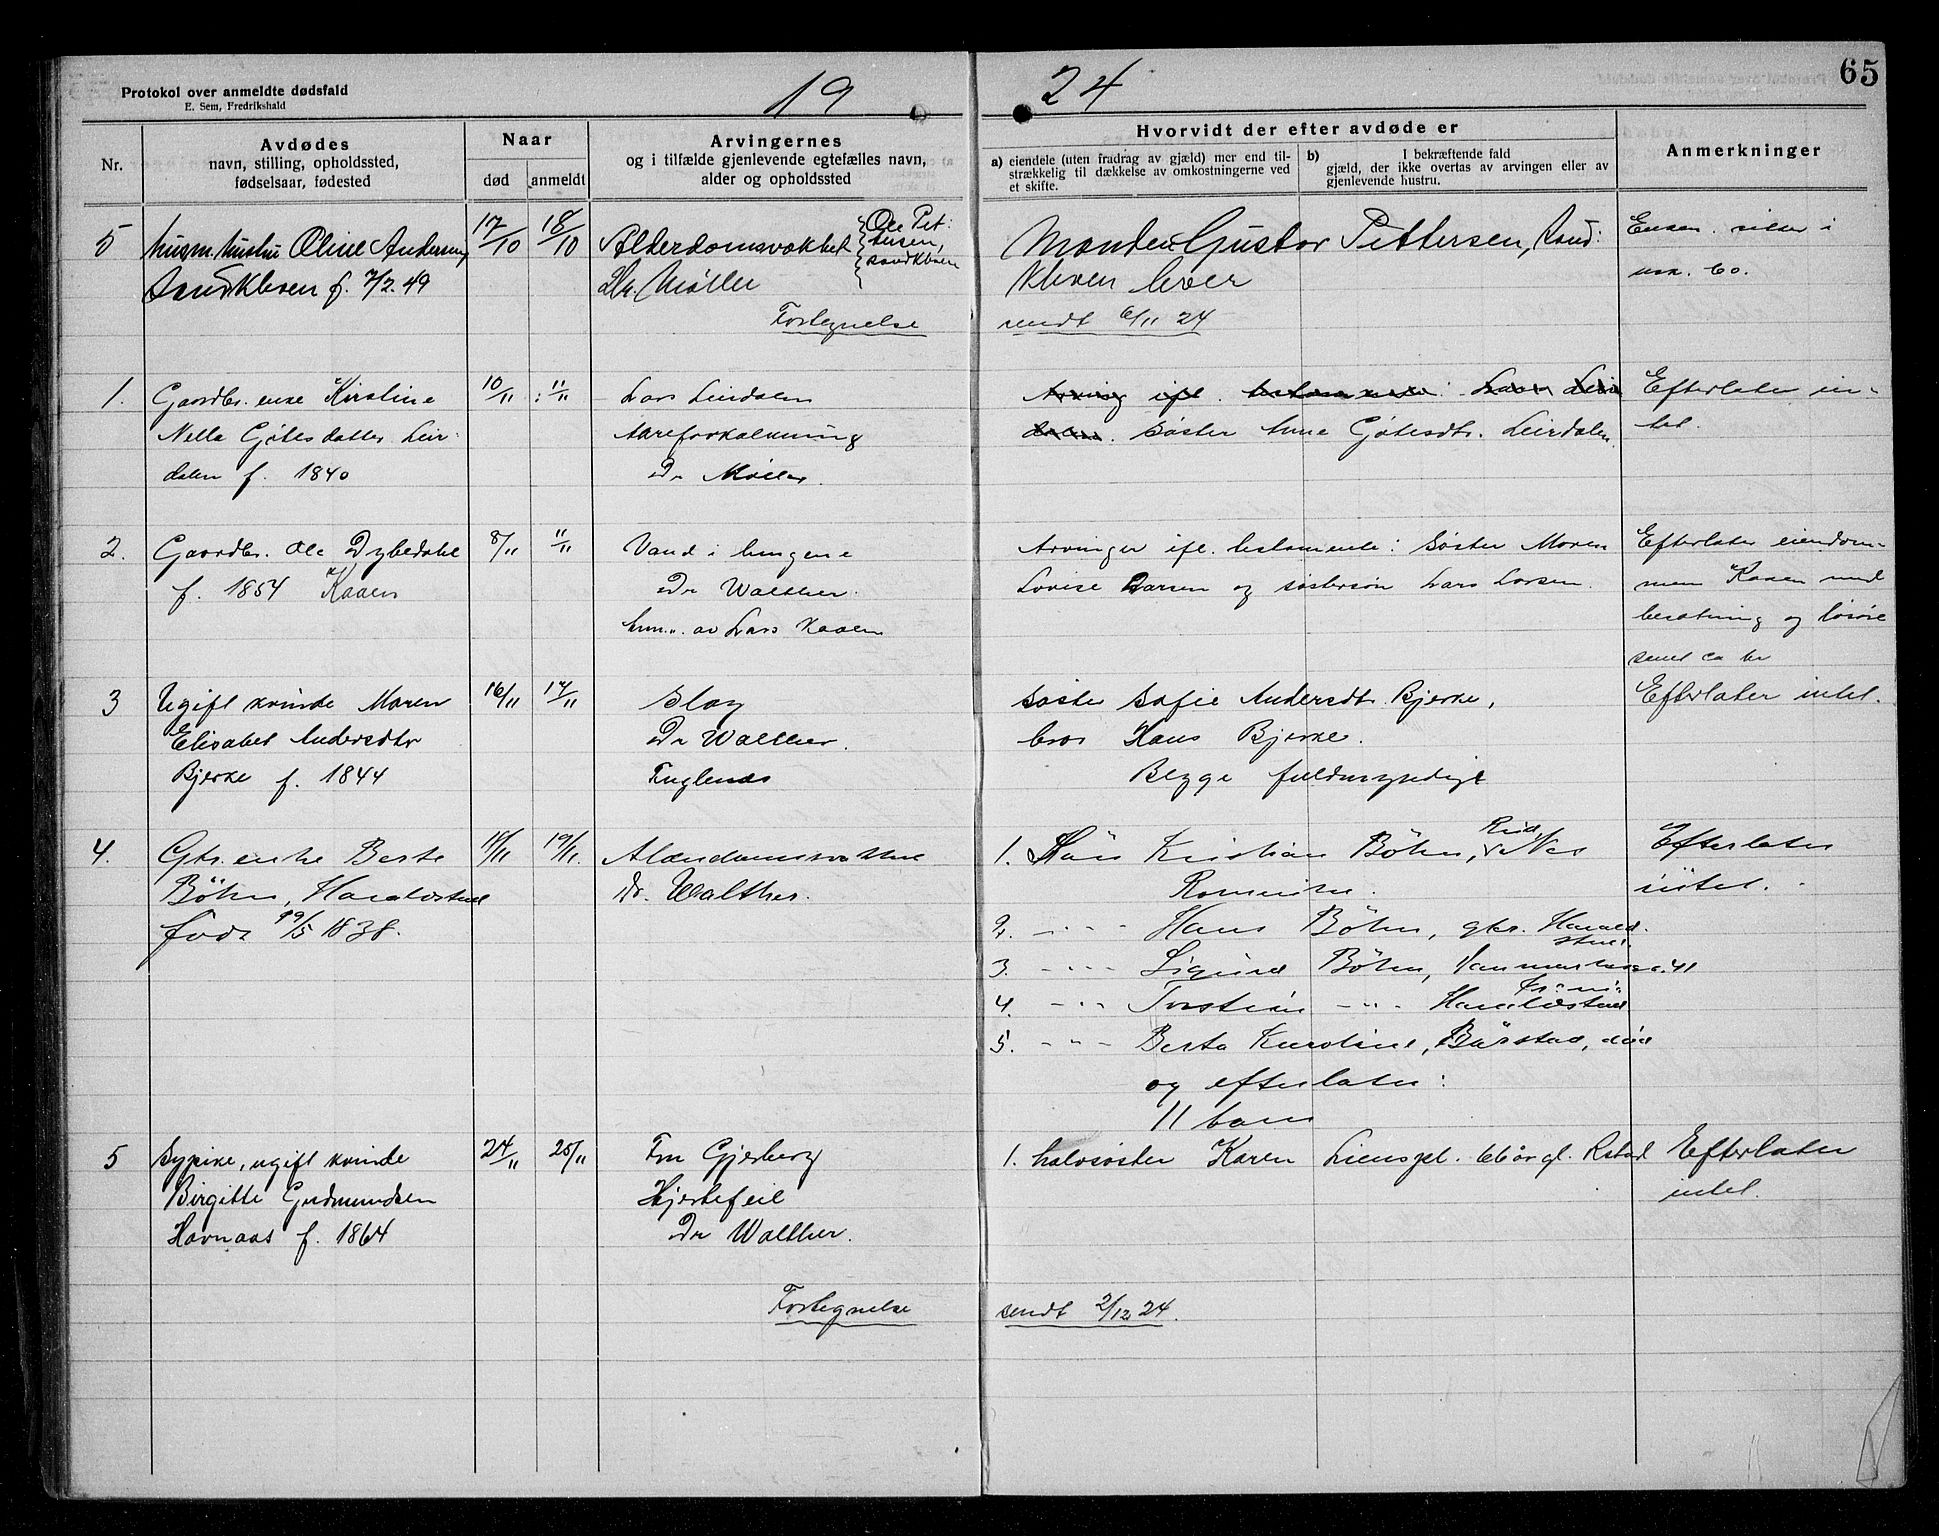 65
Protokol over anmeldte dødsfald
E. Sem, Fredrikshald
19 24
Nr.
Avdødes
navn, stilling, opholdssted,
fødselsaar, fødested
Naar
død
anmeldt
Arvingernes
og i tilfælde gjenlevende egtefælles navn,
alder og opholdssted
Hvorvidt der efter avdøde er
a) eiendele (uten fradrag av gjæld) mer end til-
strækkelig til dækkelse av omkostningerne ved
et skifte.
b) I bekræftende fald
gjæld, der ikke overtas av arvingen eller av
gjenlevende hustru.
Anmerkninger
5
hustru Oline Andersen
Sandkleven f. 7/2.49
17/10
18/10
Alderdomsvakhet
Dr. Møller
Ole Pet
tersen,
Sandkleven
Manden Gustav Pettersen, Sand:
kleven lever
Eiend. sitter i
60.
Fortegnelse
sendt 6/11 24
1.
Gaardbr. enke Kirstine
Nella Gøtesdatter Leir-
dalen f. 1840
10/11
11/11
Lars Leirdalen
Aareforkalkning
Dr Møller.
Arving ifl. testamente: Lars Leir
dalen. Søster Anne Gøtesdtr. Leirdalen
Efterlater in-
tet.
2.
Gaardbr. Ole Dybedahl
f. 1854 Kaaen
8/11
11/11
Vand i lungene
Dr Walther.
av Lars Kaaen
Arvinger ifl. testamente: Søster Maren
Lovise Larsen og søstersøn Lars Larsen.
Efterlater eiendom-
men Kaaen med
besætning og løsøre
samt ca kr
3
Ugift kvinde Maren
Elisabet Andersdtr
Bjerke f. 1844
16/11
17/11
Slag
Dr Walther.
Fuglenes
Søster Sofie Andersdtr. Bjerke,
bror Hans Bjerke.
Begge fuldmyndige
Efterlater intet.
4.
Gbr. enke Berte
Bøhn, Haraldstad
født 19/5 1838.
18/11
19/11
Alderdomssvakhet
Dr. Walther.
1. Søn Kristian Bøhn, Nes
Romerike.
2. -"- Hans Bøhn, gbr. Harald-
stad
3. -"- Sigurd Bøhn,
4. -"- Torstein -"- Haraldstad
5. -"- Berta Karoline, Børstad, død
og efterlater:
11 barn
Efterlater
intet.
5
Sypike, ugift kvinde
Birgitte Gudmundsen
Havnaas f. 1864
24/11
25/11
Fru Gjerberg
Hjertefeil
Dr Walther.
1. halvsøster Karen 66 år gl.
Efterlater
intet.
Fortegnelse
sendt 2/12 24.